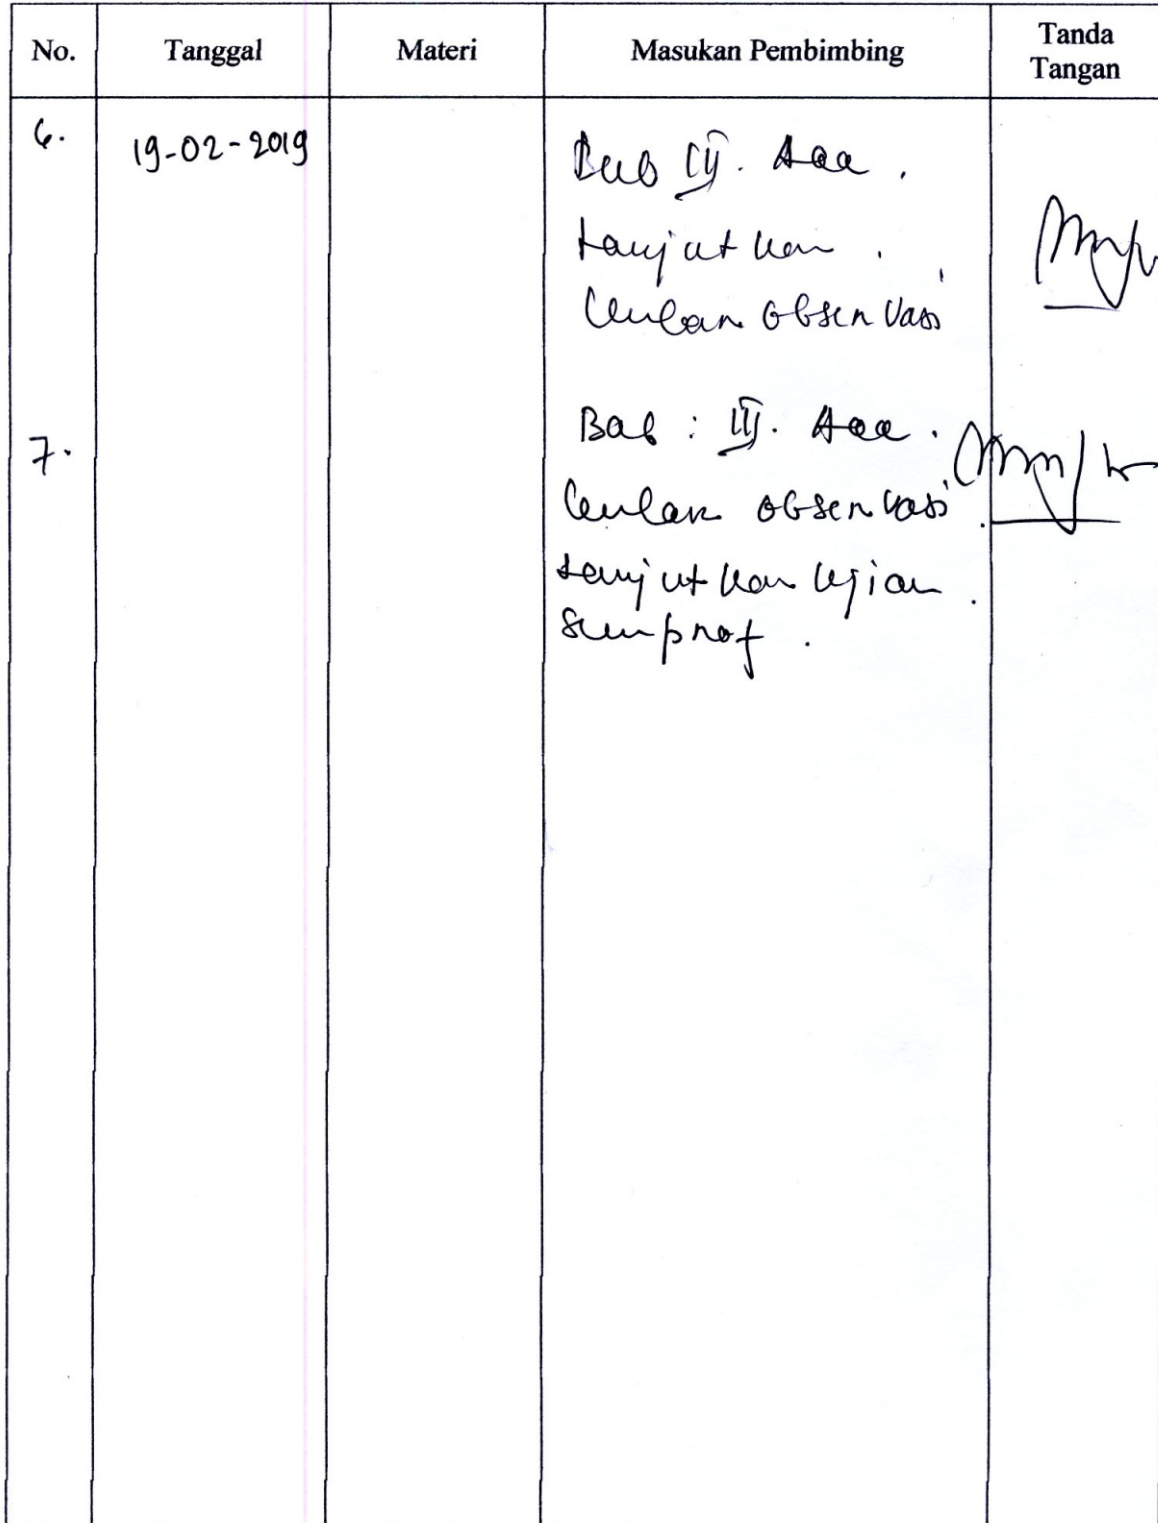 No. Tanggal Materi Masukan Pembimbing Tanda Tangan
6. 19-02-2019 Bab III. Acc.
Lanjutkan.
observasi
7. Bab : III. Acc.
observasi.
Lanjutkan ujian.
Semprof.